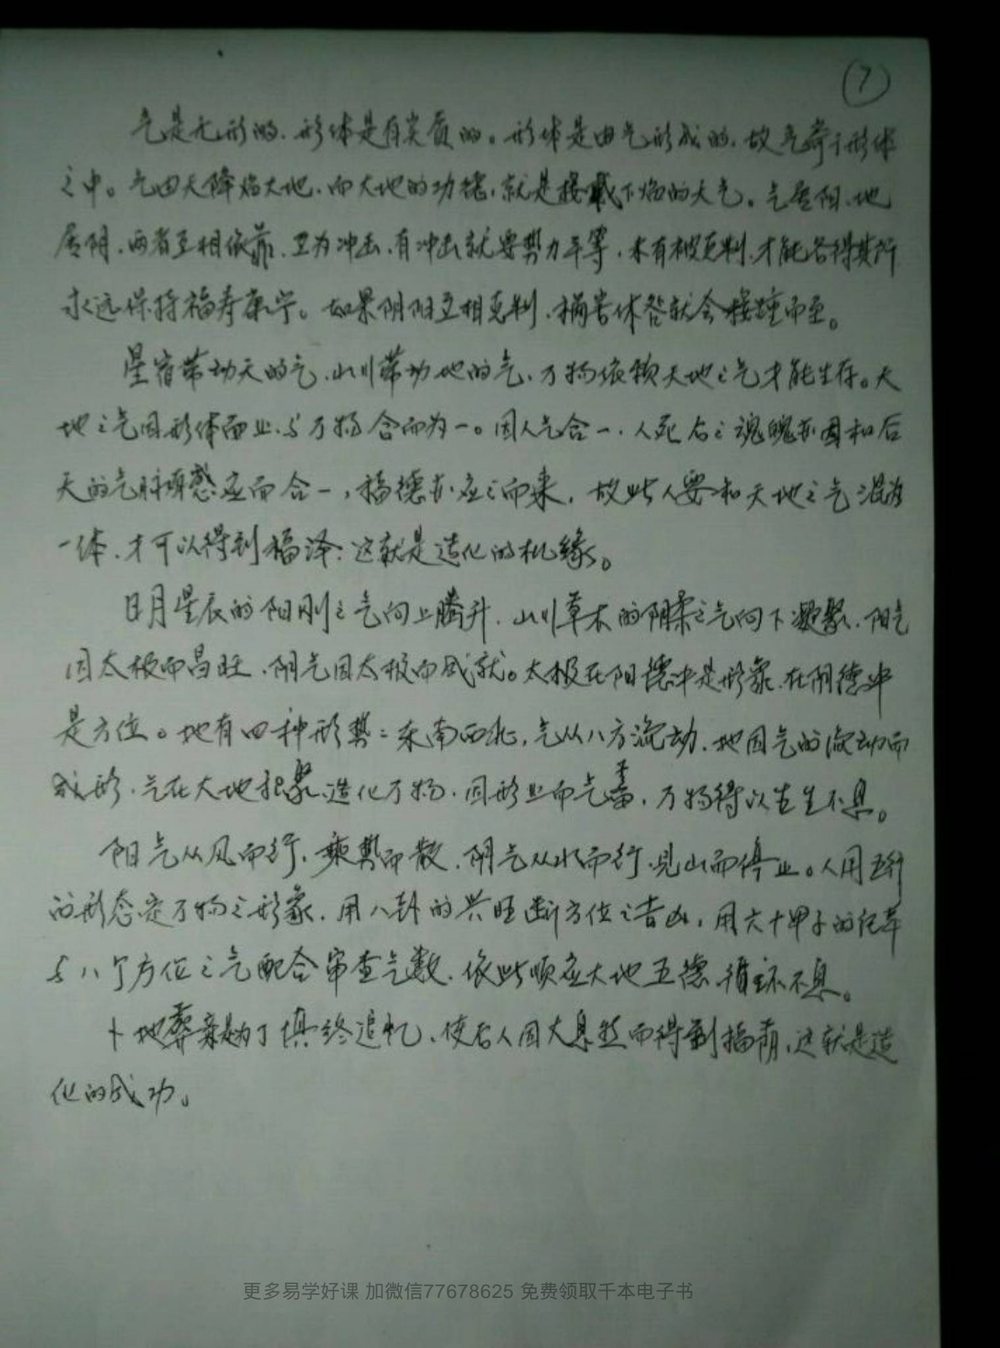 ⑦
气是无形的、形体是有实质的。形体是由气形成的、故气寄于形体
之中。气由天降临大地、而大地的功德、就是接载下临的天气。气居阳、地
居阴、两者互相依靠、互为冲击、有冲击就要势力平等、未有被克制、才能各得其所
永远保持福寿康宁。如果阴阳互相克制、祸害休咎就会接踵而至。
星宿带动天的气、山川带动地的气、万物依赖天地之气才能生存。天
地之气因形体而止、与万物合而为一。因人气合一、人死后之魂魄亦因和后
天的气脉感应而合一，福德亦应之而来，故此人要和天地之气混为
一体、才可以得到福泽：这就是造化的机缘。
日月星辰的阳刚之气向上腾升、山川草木的阴柔之气向下凝聚、阳气
因太极而昌旺、阴气因太极而成就。太极在阳德中是形象、在阴德中
是方位。地有四种形势：东南西北，气从八方流动、地因气的流动而
成形、气在大地积聚、造化万物、因形止而气蓄，万物得以生生不息。
阳气从风而行、乘势而散、阴气从水而行、见山而停止。人用五行
的形态定万物之形象、用八卦的兴旺断方位之吉凶，用六十甲子的纪年
与八个方位之气配合审查气数、依此顺应大地五德、循环不息。
卜地葬亲是为了慎终追忆、使后人因大息然而得到福荫、这就是造
化的成功。
更多易学好课 加微信77678625 免费领取千本电子书